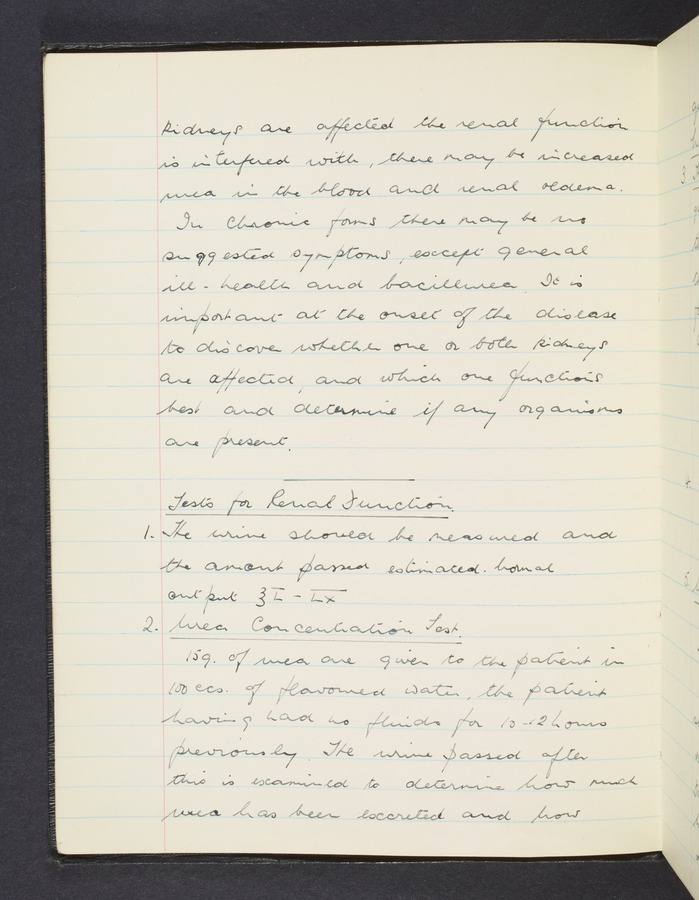 kidneys are affected the renal function
is interfered with, there may be increased
urea in the blood and renal oedema.
In chronic forms there may be no
suggested symptoms, except general
ill-health and bacilluria. It is
important at the onset of the disease
to discover whether one or both kidneys
are affected, and which one functions
best and determine if any organisms
are present.
Tests for Renal Function.
1. The urine should be measured and
the amount passed estimated. Normal
output ℥ L - LX
2. Urea Concentration Test.
15g. of urea are given to the patient in
100 ccs. of flavoured water, the patient
having had no fluids for 10-12 hours
previously. The urine passed after
this is examined to determine how much
urea has been excreted and how